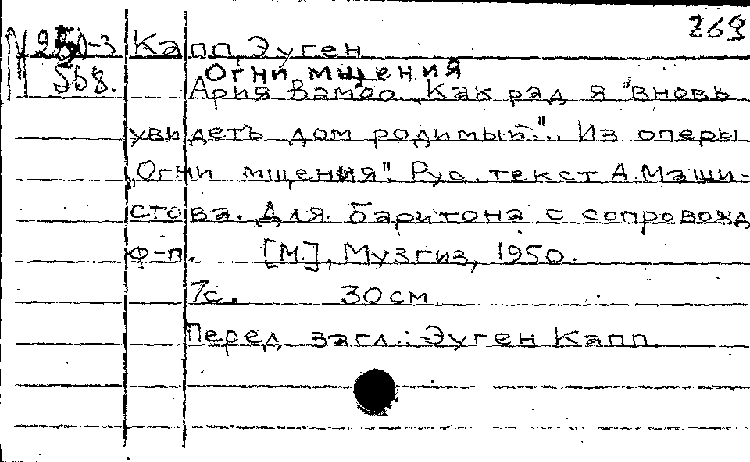 269
Капп, Эуген
568. Огни мщения
Ария Вамбо. Как рад я "вновь
увидеть дом родимый.". Из оперы
„Огни мщения". Рус. текст А. Маши-
стова. Для баритона с сопровожд
ф-п. [М.], Музгиз, 1950.
7с. 30 см
Перед загл.: Эуген Капп.